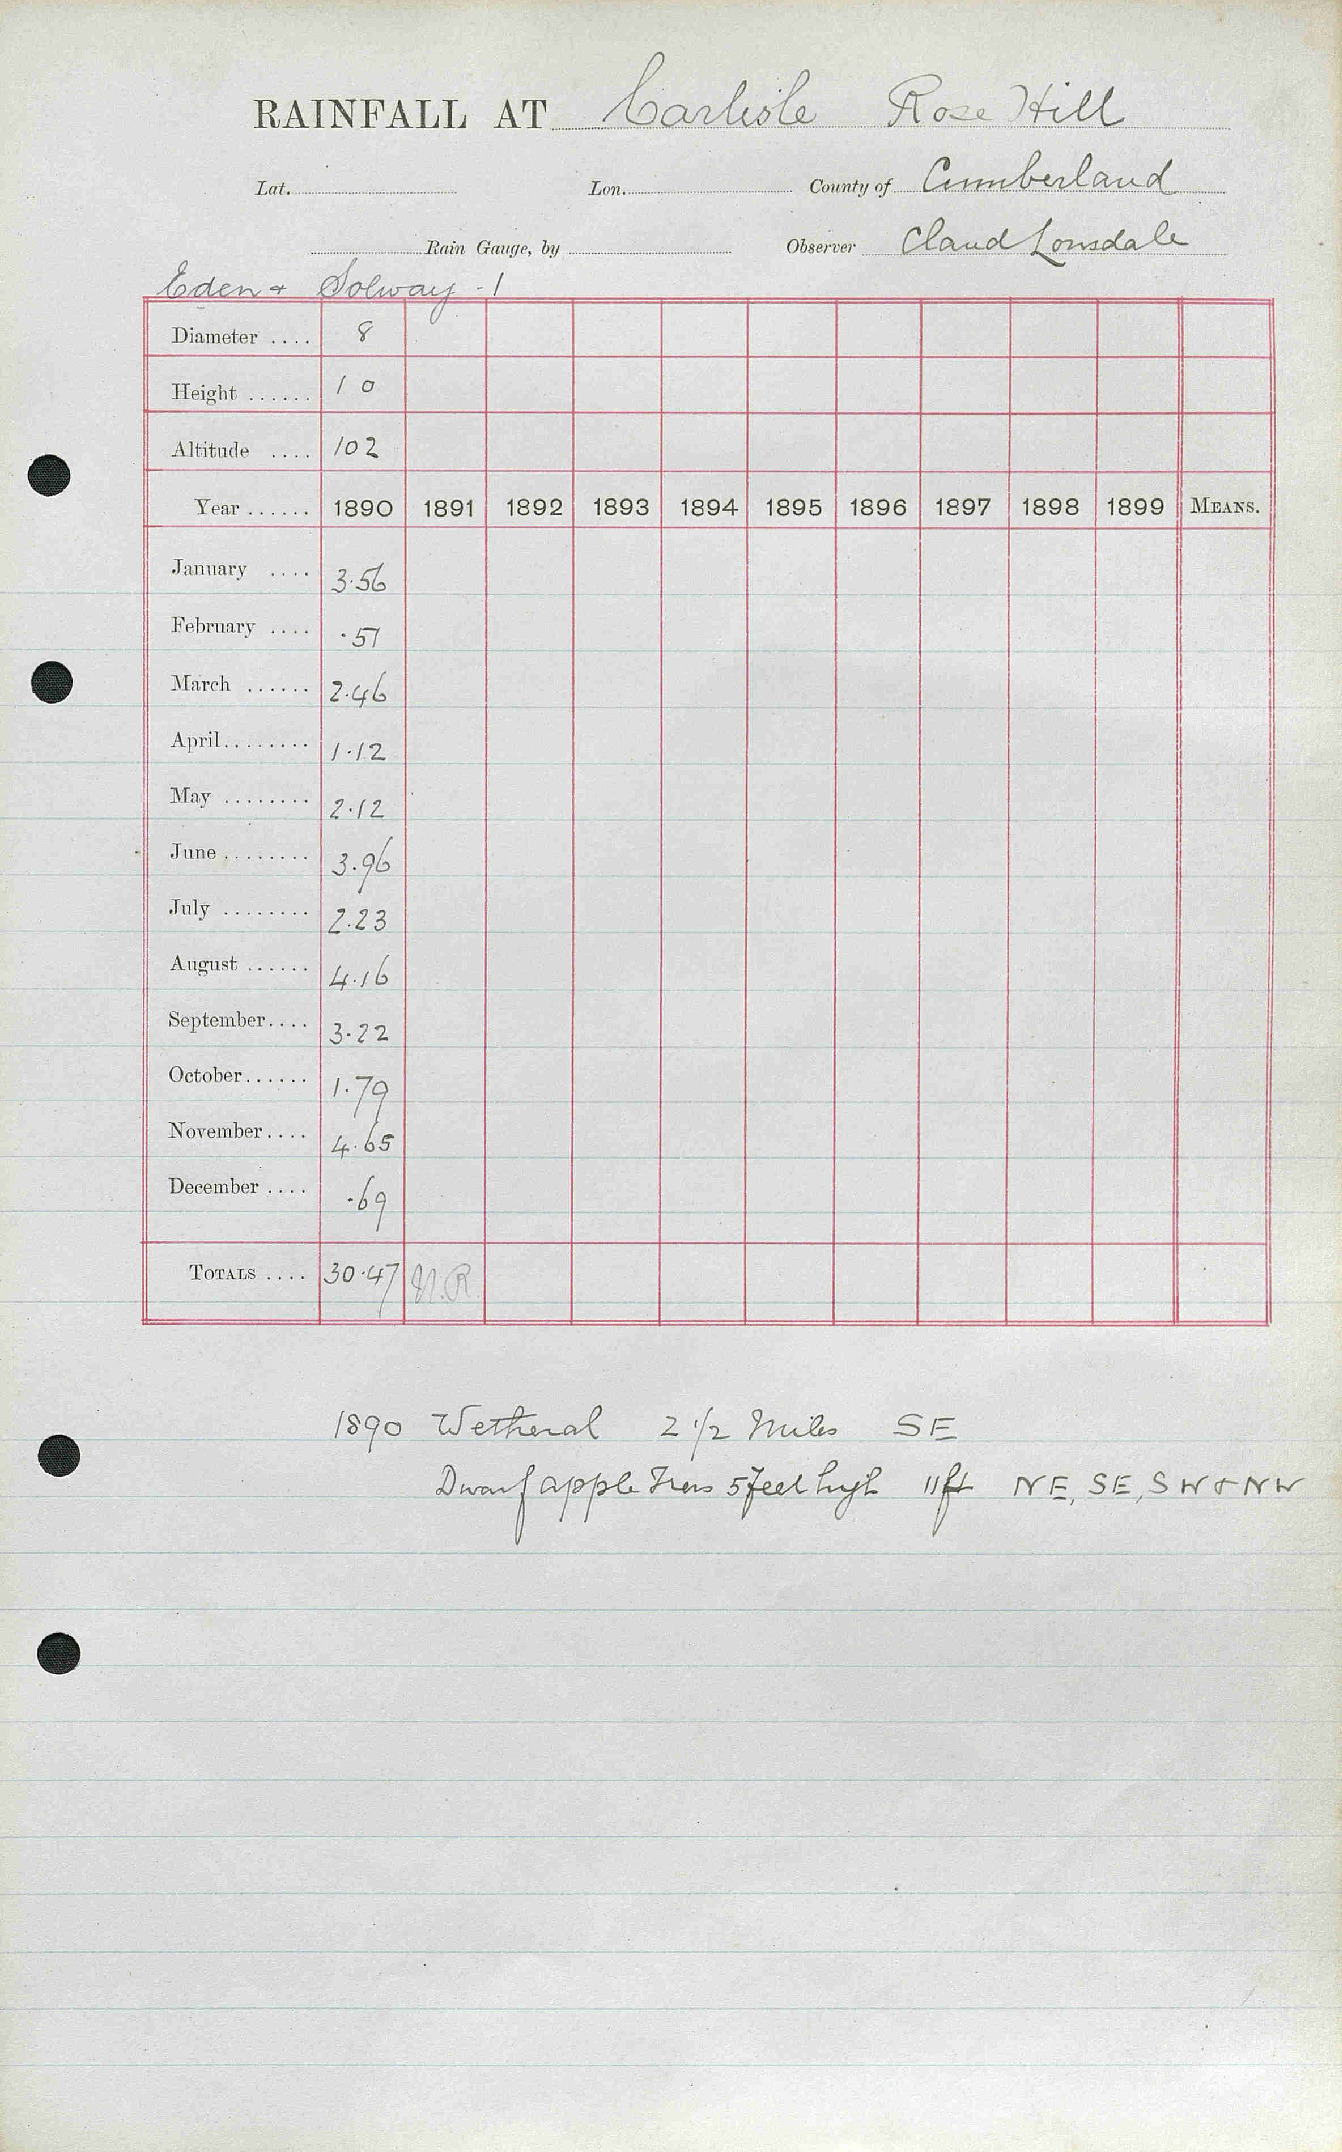 RAINFALL AT Carlisle Rose Hill
Lat. Lon. County of Cumberland
Rain Gauge, by Observer Claud Lonsdale
Eden + Solway - 1
Diameter .... 8
Height ...... 1 0
Altitude .... 102
Year ...... 1890 1891 1892 1893 1894 1895 1896 1897 1898 1899 MEANS.
January .... 3.56
February .... .51
March ...... 2.46
April........ 1.12
May ........ 2.12
June ........ 3.96
July ........ 2.23
August ...... 4.16
September.... 3.22
October...... 1.79
November.... 4.65
December .... .69
TOTALS .... 30.47 N.R.
1890 Wetheral 2 1/2 Miles SE
Dwarf apple Trees 5 feet high 11 ft NE, SE, SW + NW